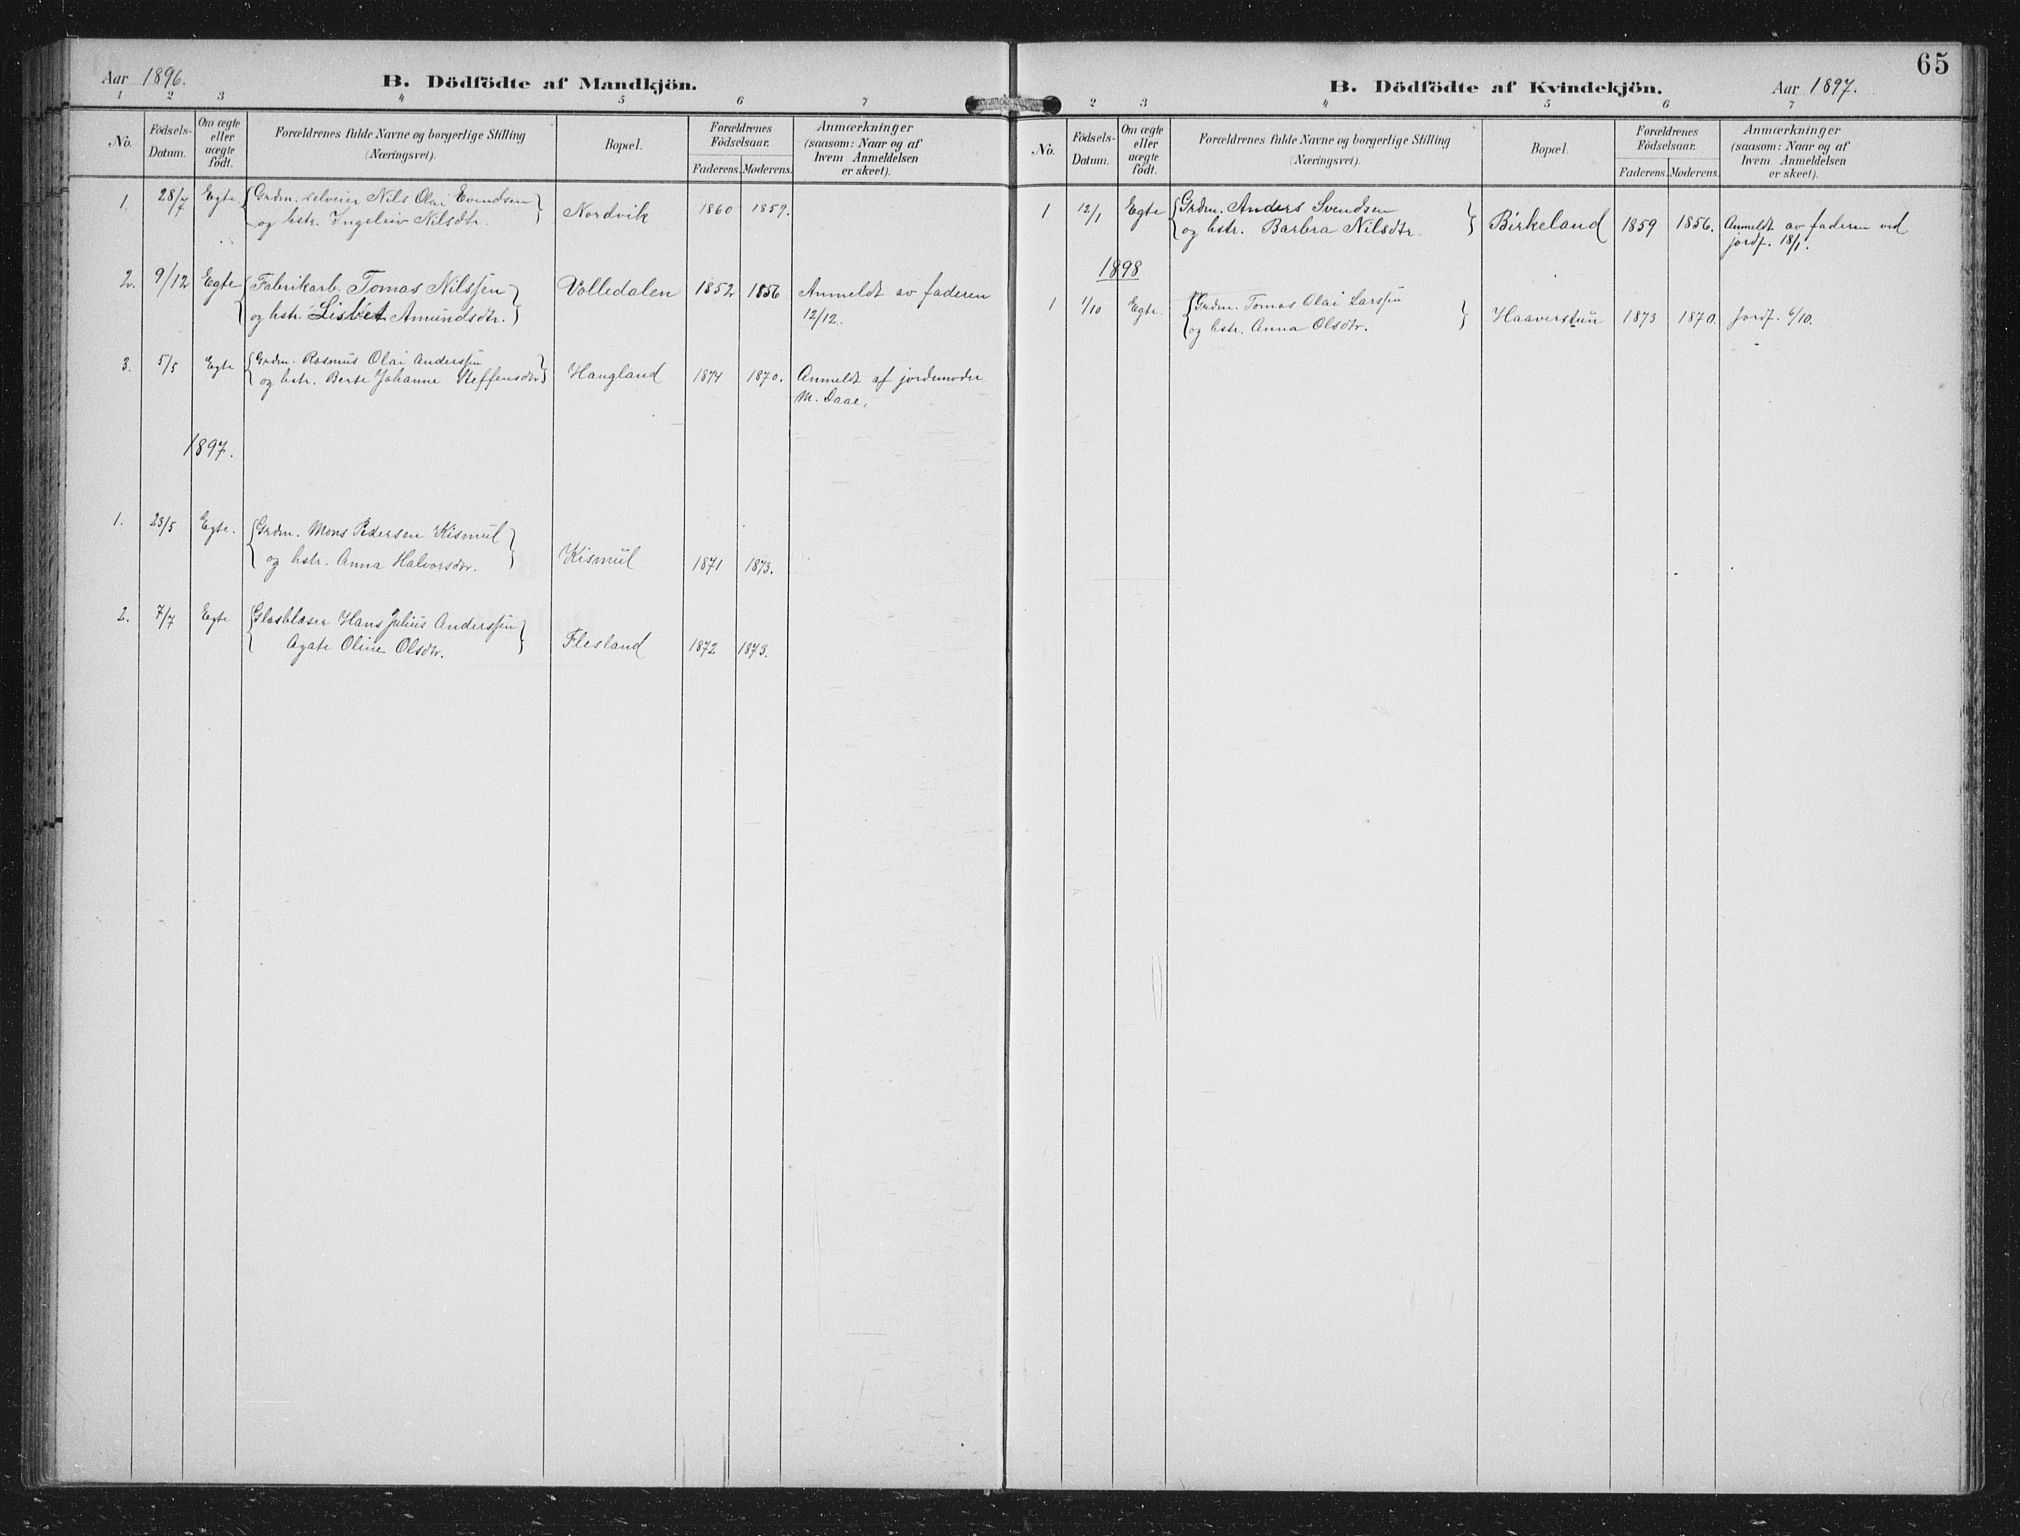 Aar 1896. B. Dödfödte af Mandkjön.
1 2 3 4 5 6 7
No. Födsels-Datum. Om ægte eller uægte födt. Forældrenes fulde Navne og borgerlige Stilling (Næringsvei). Bopæl. Forældrenes Födselsaar. Faderens. Moderens. Anmærkninger (saasom: Naar og af hvem Anmeldelsen er skeet).
1. 28/7 Egte. Grdm. selveier Nils Olai Evendsen Nordvik 1860 1859.
og hstr. Ingeleiv Nilsdtr.
2. 9/12 Egte Fabrikarb. Tomas Nilssen Volledalen 1852 1856 Anmeldt av faderen
og hstr. Lisbet Amundsdtr. 12/12.
3. 5/5 Egte Grdm. Rasmus Olai Anderssen Haugland 1874 1870. Anmeldt af jordemoder
og hstr. Berte Johanne Steffensdtr M. Daae.
1897.
1. 23/5 Egte. Grdm. Mons Pedersen Kismul Kismul 1871 1873.
og hstr. Anna Halvorsdtr.
2. 7/7 Egte Glasblæser Hans Julius Anderssen Flesland 1872 1873.
Agate Oline Olsdtr.
65
B. Dödfödte af Kvindekjön. Aar 1897.
2 3 4 5 6 7
No. Födsels-Datum. Om ægte eller uægte födt. Forældrenes fulde Navne og borgerlige Stilling (Næringsvei). Bopæl. Forældrenes Födselsaar. Faderens. Moderens. Anmærkninger (saasom: Naar og af hvem Anmeldelsen er skeet).
1 12/1 Egte Grdm. Anders Svendsen Birkeland 1859 1856. Anmeldt av faderen ved
og hstr. Barbra Nilsdtr. jordf. 18/1.
1898
1 1/10 Egte. Grdm. Tomas Olai Larssen Haaverstun 1873 1870. Jordf. 6/10.
og hstr. Anna Olsdtr.